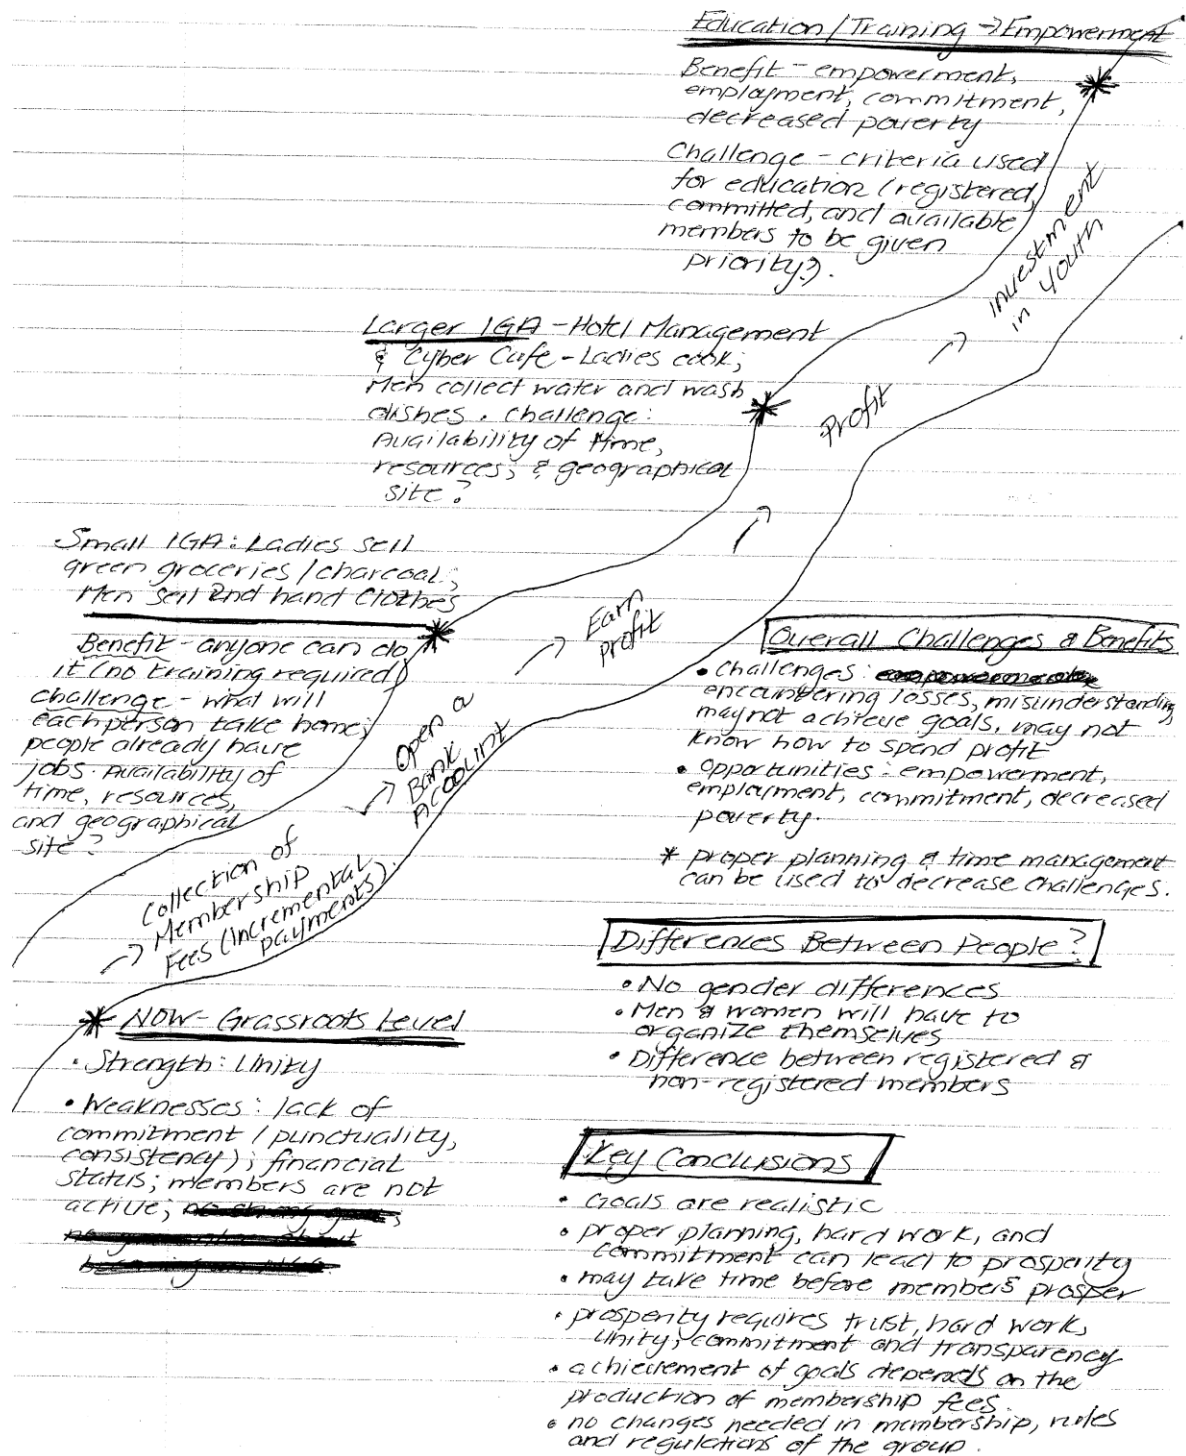 Education / Training → Empowerment
Benefit - empowerment,
employment, commitment,
decreased poverty
Challenge - criteria used
for education (registered,
committed, and available
members to be given
priority?).
investment
in youth
Larger IGA - Hotel Management
& Cyber Cafe - Ladies cook;
Men collect water and wash
dishes. Challenge:
Availability of time,
resources, & geographical
site?
Profit
Small IGA: Ladies sell
green groceries / charcoal;
Men sell 2nd hand Clothes
Benefit - anyone can do
it (no training required)
Challenge - what will
each person take home;
people already have
jobs. Availability of
time, resources,
and geographical
site?
Earn
profit
Open a
Bank
Account
Collection of
Membership
Fees (Incremental
payments).
* NOW - Grassroots Level
• Strength: Unity
• Weaknesses: lack of
commitment (punctuality,
consistency); financial
status; members are not
active;
Overall Challenges & Benefits
• Challenges:
encountering losses, misunderstanding,
may not achieve goals, may not
know how to spend profit
• Opportunities: empowerment,
employment, commitment, decreased
poverty.
* proper planning & time management
can be used to decrease challenges.
Differences Between People?
• No gender differences
• Men & women will have to
organize themselves
• Difference between registered &
non-registered members
Key Conclusions
• Goals are realistic
• proper planning, hard work, and
commitment can lead to prosperity
• may take time before members prosper
• prosperity requires trust, hard work,
unity, commitment and transparency
• achievement of goals depends on the
production of membership fees.
• no changes needed in membership, rules
and regulations of the group.